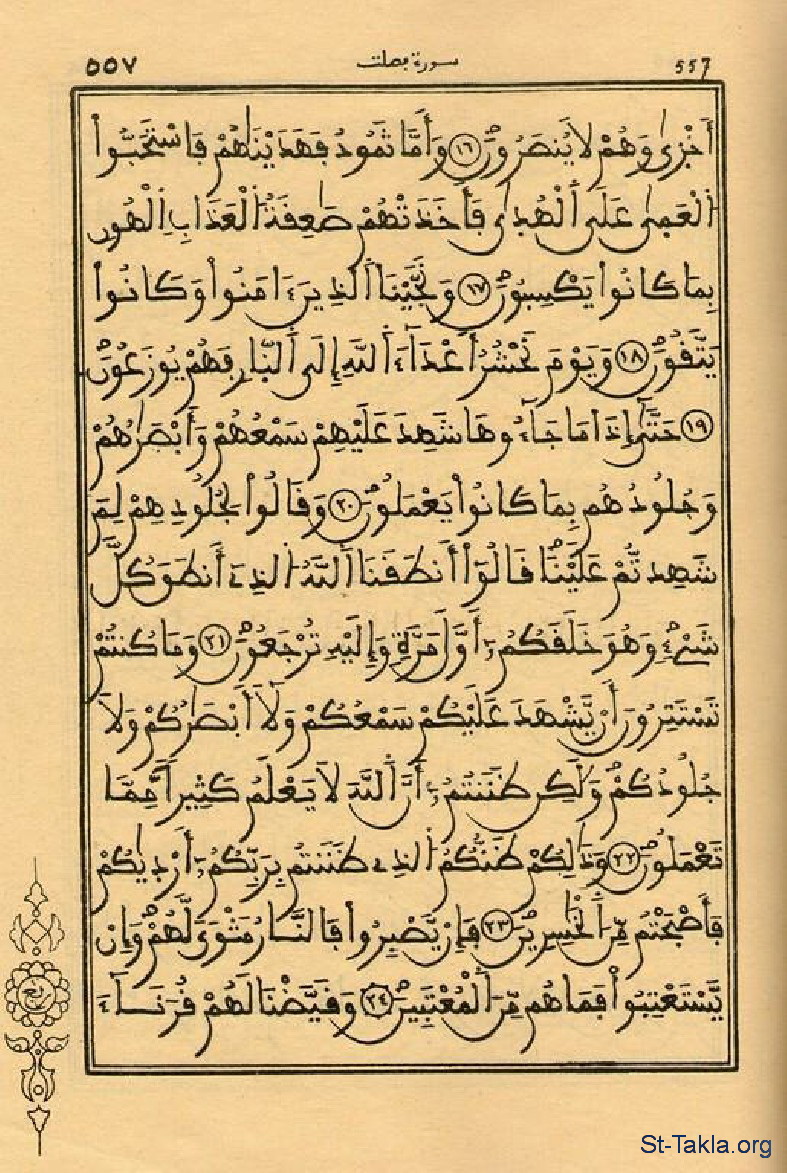 ٥٥٧ سورة فصلت 557
أَخْزَىٰ وَهُمْ لَا يُنصَرُونَ ١٦ وَأَمَّا ثَمُودُ فَهَدَيْنَٰهُمْ فَاسْتَحَبُّواْ
اُلْعَمَىٰ عَلَى اَلْهُدَىٰ فَأَخَذَتْهُمْ صَٰعِقَةُ اُلْعَذَابِ اِلْهُونِ
بِمَا كَانُواْ يَكْسِبُونَ ١٧ وَنَجَّيْنَا اَلذِينَ ءَامَنُواْ وَكَانُواْ
يَتَّقُونَ ١٨ وَيَوْمَ نَحْشُرُ أَعْدَآءَ اَللَّهِ إِلَى اَلنَّارِ فَهُمْ يُوزَعُونَ
١٩ حَتَّىٰٓ إِذَا مَا جَآءُوهَا شَهِدَ عَلَيْهِمْ سَمْعُهُمْ وَأَبْصَٰرُهُمْ
وَجُلُودُهُم بِمَا كَانُواْ يَعْمَلُونَ ٢٠ وَقَالُواْ لِجُلُودِهِمْ لِمَ
شَهِدتُّمْ عَلَيْنَا قَالُوٓاْ أَنطَقَنَا اَللَّهُ اُلذِےٓ أَنطَقَ كُلَّ
شَےْءٖ وَهُوَ خَلَقَكُمُۥٓ أَوَّلَ مَرَّةٖ وَإِلَيْهِ تُرْجَعُونَ ٢١ وَمَا كُنتُمْ
تَسْتَتِرُونَ أَنْ يَّشْهَدَ عَلَيْكُمْ سَمْعُكُمْ وَلَآ أَبْصَٰرُكُمْ وَلَا
جُلُودُكُمْ وَلَٰكِن ظَنَنتُمُۥٓ أَنَّ اَللَّهَ لَا يَعْلَمُ كَثِيراٗ مِّمَّا
تَعْمَلُونَ ٢٢ وَذَٰلِكُمْ ظَنُّكُمُ اُلذِے ظَنَنتُم بِرَبِّكُمُۥٓ أَرْدَىٰكُمْ
فَأَصْبَحْتُم مِّنَ اَلْخَٰسِرِينَ ٢٣ فَإِنْ يَّصْبِرُواْ فَالنَّارُ مَثْوىٗ لَّهُمْ وَإِنْ
يَّسْتَعْتِبُواْ فَمَا هُم مِّنَ اَلْمُعْتَبِينَ ٢٤ وَقَيَّضْنَا لَهُمْ قُرَنَآءَ
St-Takla.org